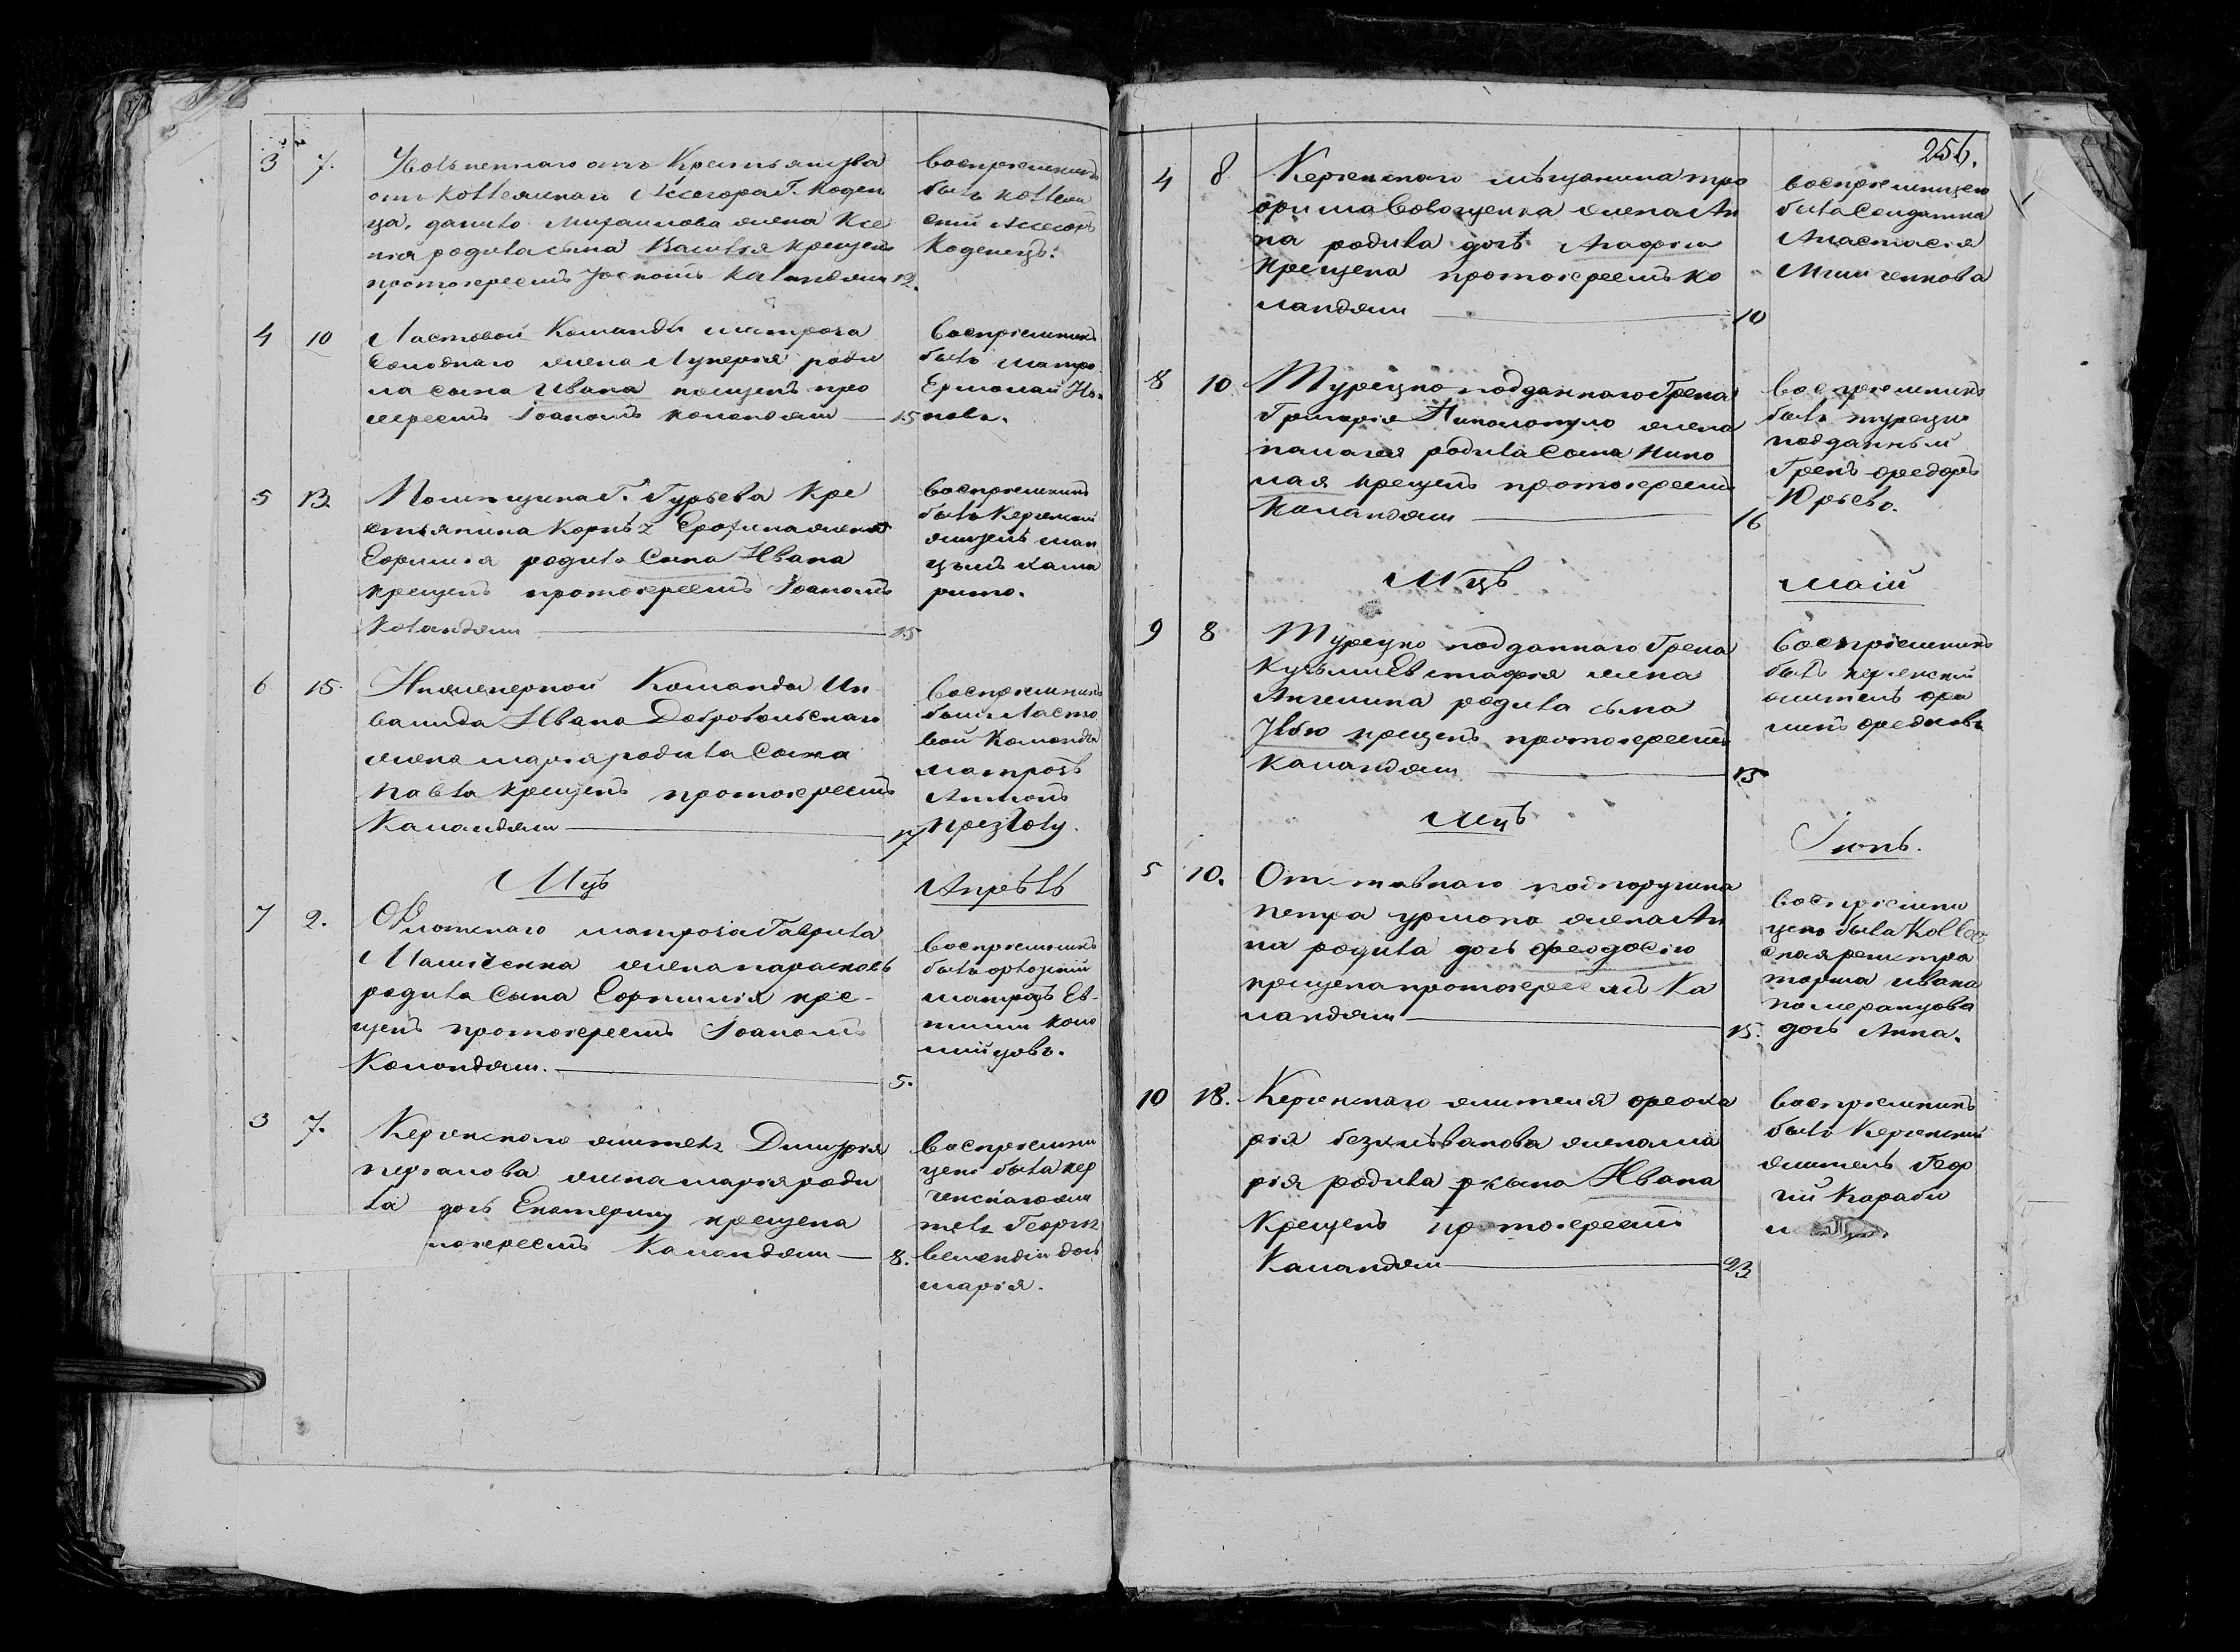 3 7. Увольненнаго отъ Крестьянства
отъ коллежскаго Ассесора Г. Коден
ца, данило Михаилова жена Ксе
нія родила сына Василія крещенъ
протоіереемъ Іоаномъ Каланджи 12.
воспріемникъ
былъ коллеж
скій Ассесоръ
Коденецъ.
4 10 Ластовой Команды матроза
Солоднаго жена Лукерія роди
ла сына Ивана крещенъ про
іереемъ Іоаномъ Каланджи 15
воспріемникъ
былъ матро
Ермолай
повъ.
5 13 Помещика Г. Гурьева Кре
стьянина Корнѣя жена
Евфимія родила Сына Ивана
крещенъ протоіереемъ Іоаномъ
Каланджи 15
воспріемникъ
былъ Керченскій
рито.
6 15. Инженерной Команды Ин
валида Ивана Добровольскаго
жена марія родила Сына
Павла крещенъ протоіереемъ
Каланджи 17
воспріемникъ
былъ Ласто
вой Команды
матрозъ
Антонъ
Мцъ Апрѣль
7 2. Флотскаго матроза Гаврила
жена парасковь
родила Сына Евфимія кре-
щенъ протоіереемъ Іоаномъ
Каланджи. 5.
воспріемникъ
былъ флоцкій
матрозъ Ев-
тихи коло
мійцовъ.
3 7. Керченскаго жителя Димитрія
жена марія роди
ла дочь Екатерину крещена
тоіереемъ Каланджи 8.
воспріемни
цею была кер
ченскаго жи
теля Георгія
дочь
марія.
256.
4 8 Керченскаго мѣщанина тро
фима Вовощенка жена Ан
на родила дочь Агафію
крещена протоіереемъ ка
ланджи 10
воспріемницею
была Солдатка
Анастасія
8 10 Турецко подданнаго Грека
Григорія Николопуло жена
панагея родила Сына Нико
лая крещенъ протоіереемъ
Каланджи 16
воспріемникъ
былъ турецко
подданный
Грекъ Федоръ
Юрьевъ.
Мцъ Маій
9 8 Турецко подданнаго Грека
Кузьмы Евстафія жена
Ангелина родила сына
Илью крещенъ протоіереемъ
Каланджи 15
воспріемникъ
былъ керченскій
житель
мцъ Іюнь.
5 10. Отставнаго подпоручика
петра жена Ан
на родила дочь Феодосію
крещена протоіереемъ Ка
ланджи 15.
воспріемни
цею была Коллеж
ская регистра
торша Ивана
померанцова
дочь Анна.
10 18. Керченскаго жителя Феока
рія жена ма
рія родила сына Ивана
Крещенъ протоіереемъ
Каланджи 23
воспріемникъ
былъ Керченскій
житель Геор
гій Караби